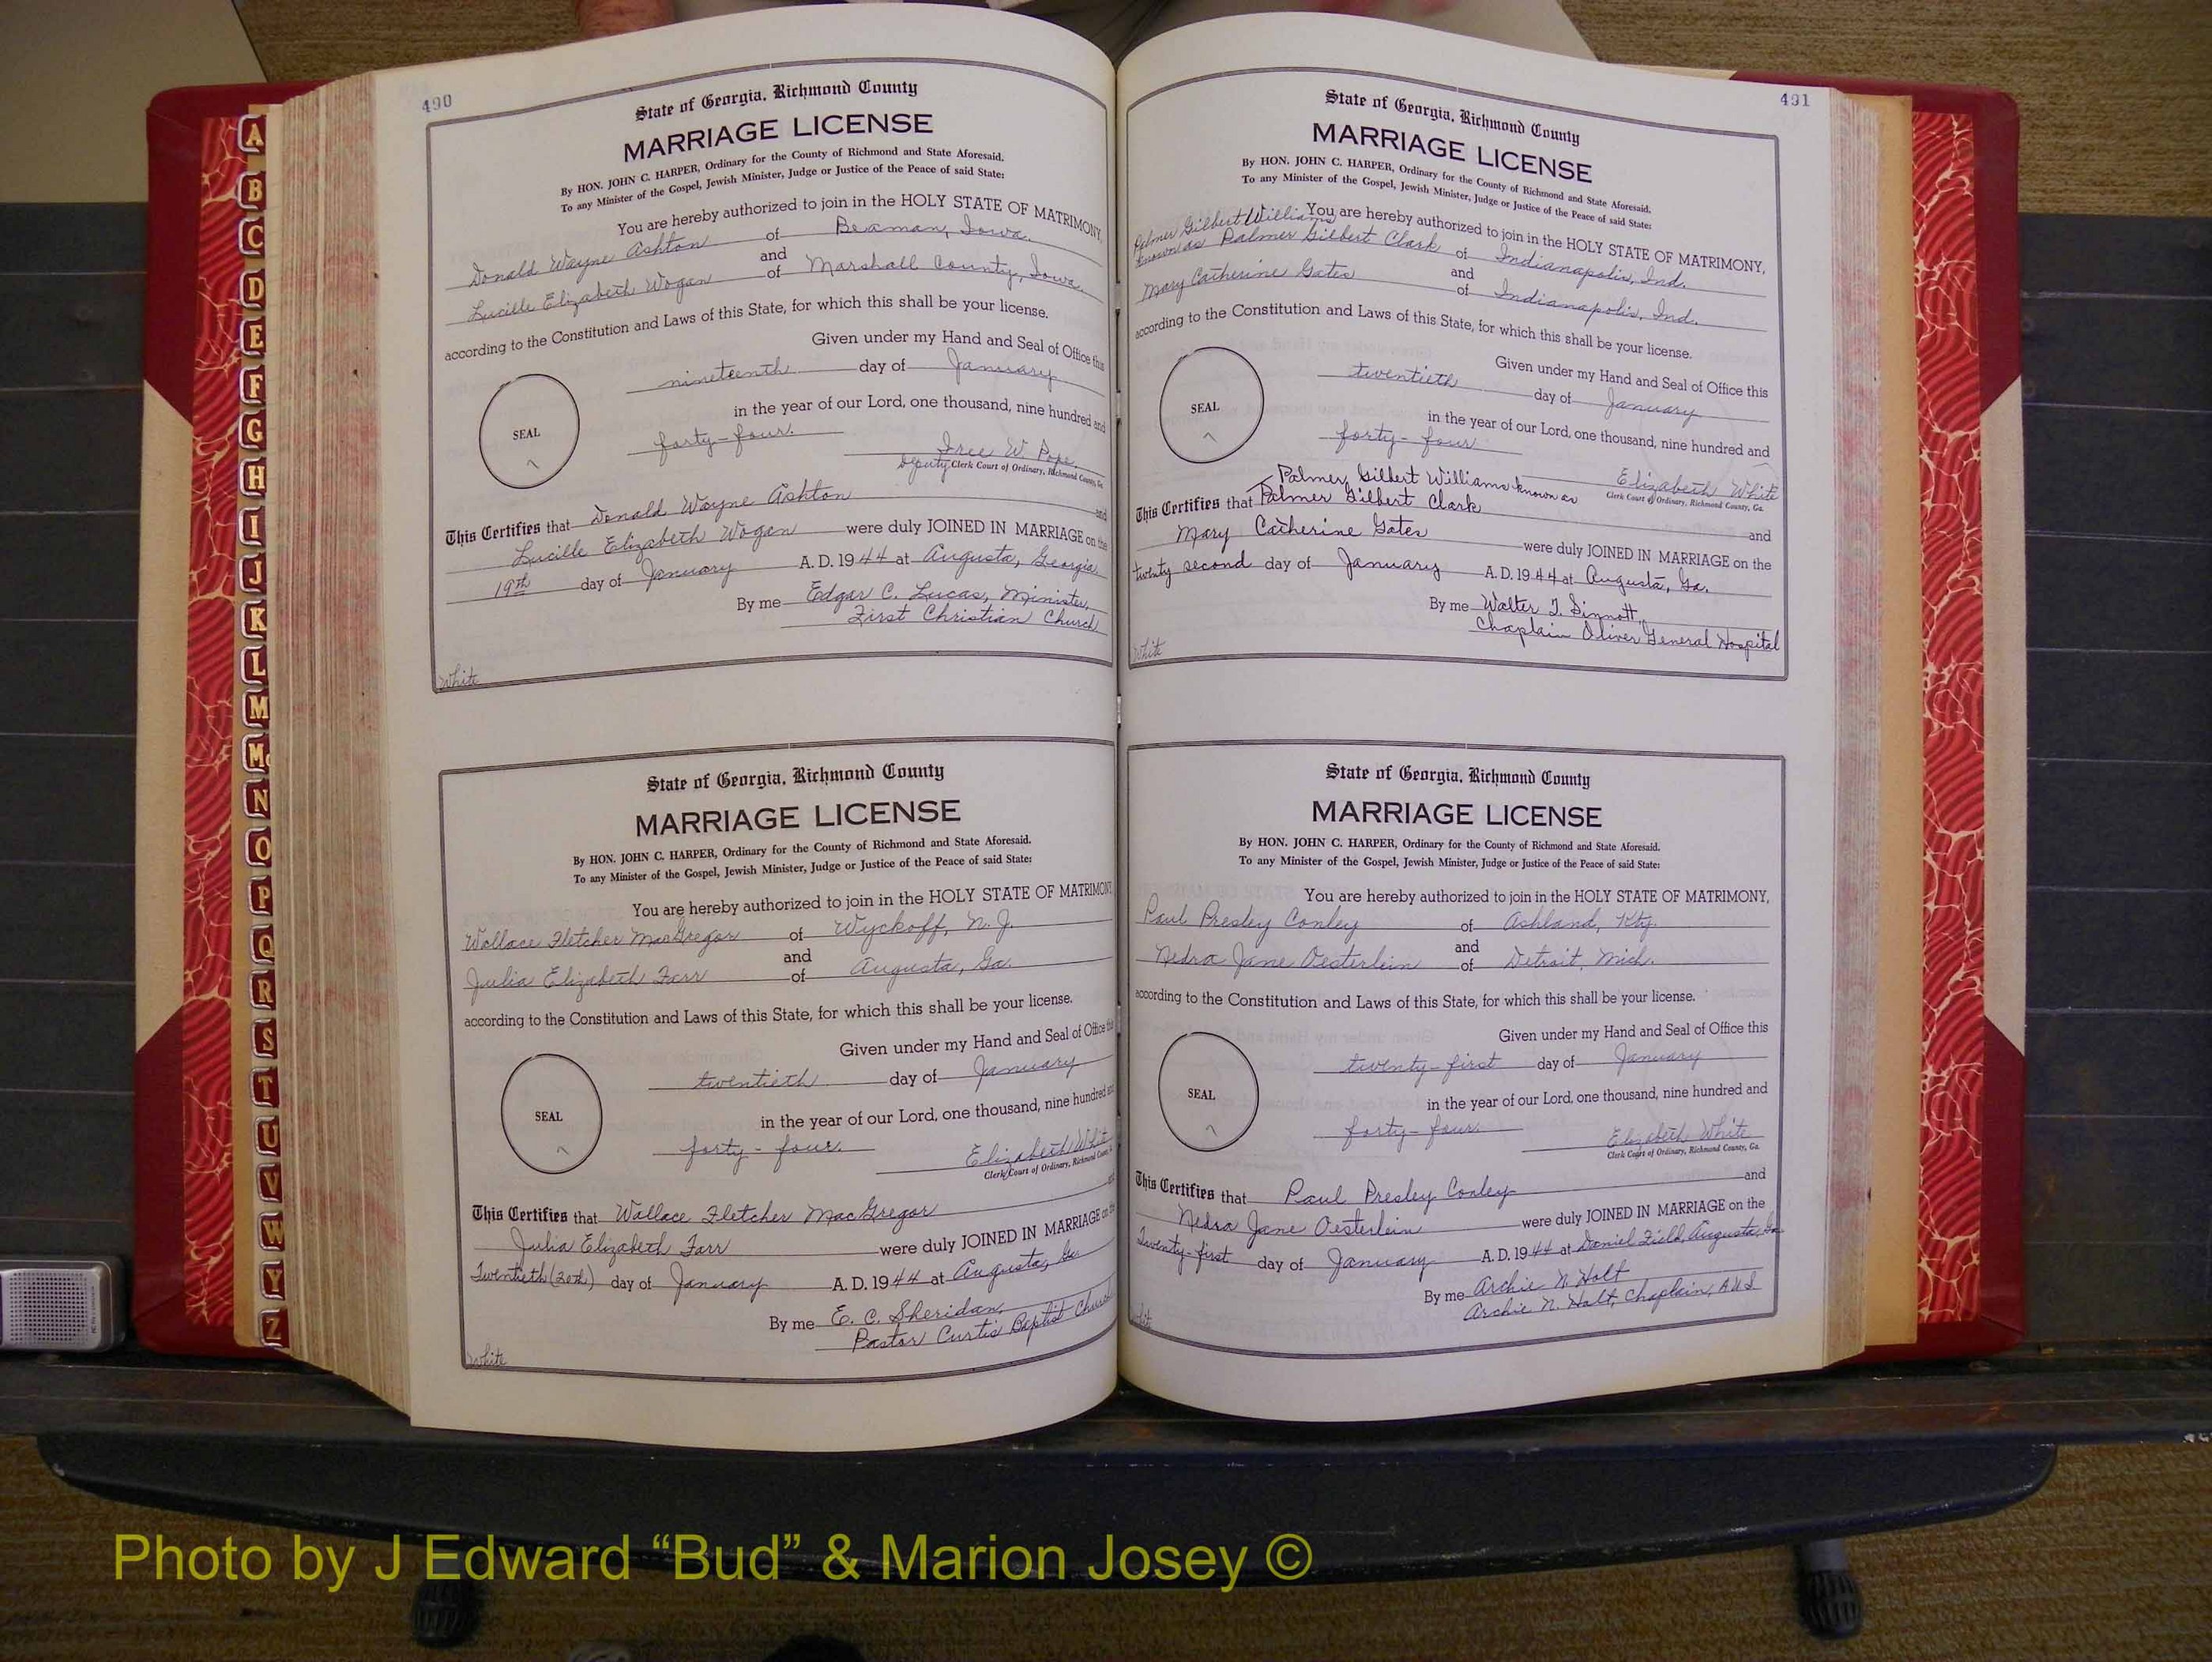 490
State of Georgia, Richmond County
MARRIAGE LICENSE
By HON. JOHN C. HARPER, Ordinary for the County of Richmond and State Aforesaid.
To any Minister of the Gospel, Jewish Minister, Judge or Justice of the Peace of said State:
You are hereby authorized to join in the HOLY STATE OF MATRIMONY,
Donald Wayne Ashton of Beaman, Iowa.
and
Lucille Elizabeth Wogan of Marshall County, Iowa.
according to the Constitution and Laws of this State, for which this shall be your license.
Given under my Hand and Seal of Office this
nineteenth day of January
in the year of our Lord, one thousand, nine hundred and
SEAL
forty-four.
W. Pope,
Deputy Clerk Court of Ordinary, Richmond County, Ga.
This Certifies that Donald Wayne Ashton and
Lucille Elizabeth Wogan were duly JOINED IN MARRIAGE on the
19th day of January A. D. 1944 at Augusta, Georgia
By me Edgar C. Lucas, Minister,
First Christian Church
White
State of Georgia, Richmond County
MARRIAGE LICENSE
By HON. JOHN C. HARPER, Ordinary for the County of Richmond and State Aforesaid.
To any Minister of the Gospel, Jewish Minister, Judge or Justice of the Peace of said State:
You are hereby authorized to join in the HOLY STATE OF MATRIMONY
Wallace Fletcher MacGregor of Wyckoff, N. J.
and
Julia Elizabeth Farr of Augusta, Ga.
according to the Constitution and Laws of this State, for which this shall be your license.
Given under my Hand and Seal of Office this
twentieth day of January
in the year of our Lord, one thousand, nine hundred and
SEAL
forty-four.
Elizabeth White
Clerk Court of Ordinary, Richmond County,
and
This Certifies that Wallace Fletcher MacGregor
Julia Elizabeth Farr were duly JOINED IN MARRIAGE on the
Twentieth (20th) day of January A. D. 1944 at Augusta, Ga.
By me E. C. Sheridan,
Pastor Curtis Baptist Church
White
491
State of Georgia, Richmond County
MARRIAGE LICENSE
By HON. JOHN C. HARPER, Ordinary for the County of Richmond and State Aforesaid.
To any Minister of the Gospel, Jewish Minister, Judge or Justice of the Peace of said State:
You are hereby authorized to join in the HOLY STATE OF MATRIMONY,
Palmer Gilbert Williams
known as Palmer Gilbert Clark of Indianapolis, Ind.
and
Mary Catherine Gates of Indianapolis, Ind.
according to the Constitution and Laws of this State, for which this shall be your license.
Given under my Hand and Seal of Office this
twentieth day of January
in the year of our Lord, one thousand, nine hundred and
SEAL
forty-four
Elizabeth White
Clerk Court of Ordinary, Richmond County, Ga.
Palmer Gilbert Williams known as
This Certifies that Palmer Gilbert Clark
and
Mary Catherine Gates were duly JOINED IN MARRIAGE on the
twenty second day of January A. D. 1944 at Augusta, Ga.
By me Walter J. Sinnott,
Chaplain Oliver General Hospital
White
State of Georgia, Richmond County
MARRIAGE LICENSE
By HON. JOHN C. HARPER, Ordinary for the County of Richmond and State Aforesaid.
To any Minister of the Gospel, Jewish Minister, Judge or Justice of the Peace of said State:
You are hereby authorized to join in the HOLY STATE OF MATRIMONY,
Paul Presley Conley of Ashland, Kty.
and
Nedra Jane Oesterlein of Detroit, Mich.
according to the Constitution and Laws of this State, for which this shall be your license.
Given under my Hand and Seal of Office this
twenty-first day of January
in the year of our Lord, one thousand, nine hundred and
SEAL
forty-four.
Elizabeth White
Clerk Court of Ordinary, Richmond County, Ga.
This Certifies that Paul Presley Conley and
Nedra Jane Oesterlein were duly JOINED IN MARRIAGE on the
Twenty-first day of January A. D. 1944 at Daniel Field, Augusta, Ga
By me Archie N Holt
Archie N. Holt, Chaplain, AUS
White
A
B
C
D
E
F
G
H
I
J
K
L
M
Mc
N
O
P
Q
R
S
T
U
V
W
Y
Z
Photo by J Edward “Bud” & Marion Josey ©